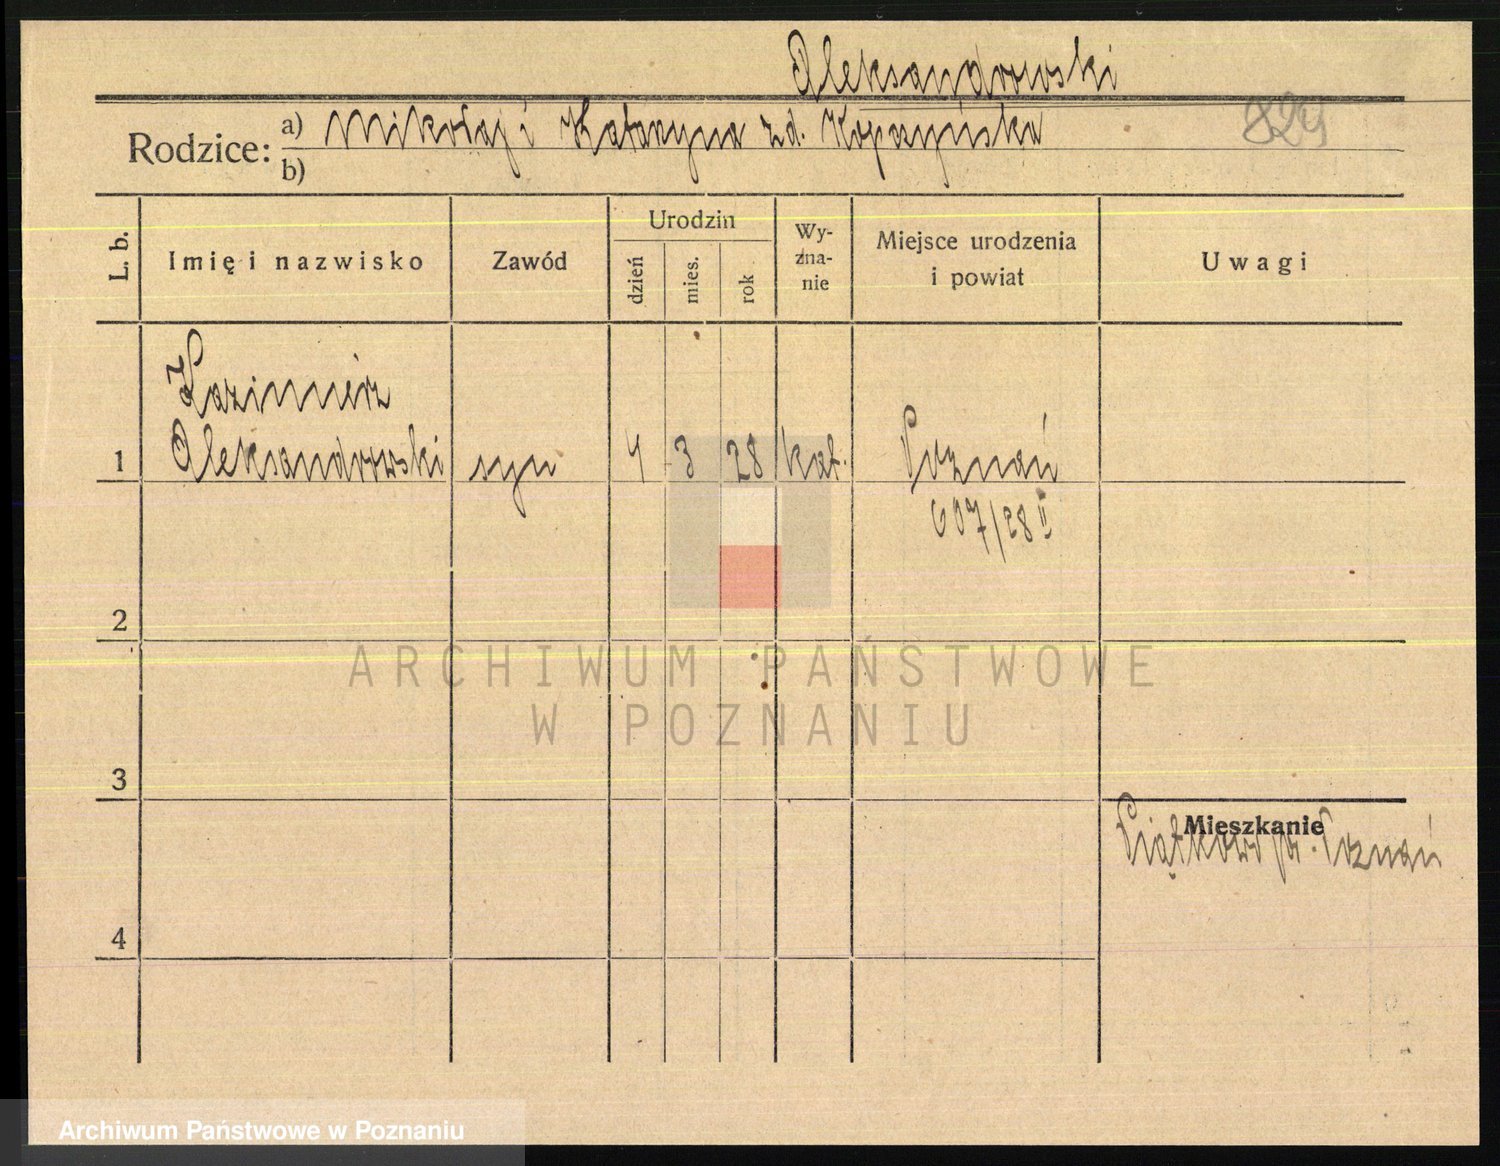 Aleksandrowski
829
Rodzice: a) Mikołaj i Katarzyna zd. Kopczyńska
b)
L. b.
Imię i nazwisko
Zawód
Urodzin
dzień
mies.
rok
Wy-
zna-
nie
Miejsce urodzenia
i powiat
Uwagi
Kazimierz
1 Aleksandrowski syn 4 3 28 kat. Poznań
607/28 II
2
ARCHIWUM PAŃSTWOWE
W POZNANIU
3
Mieszkanie
Piątkowo pow. Poznań
4
Archiwum Państwowe w Poznaniu